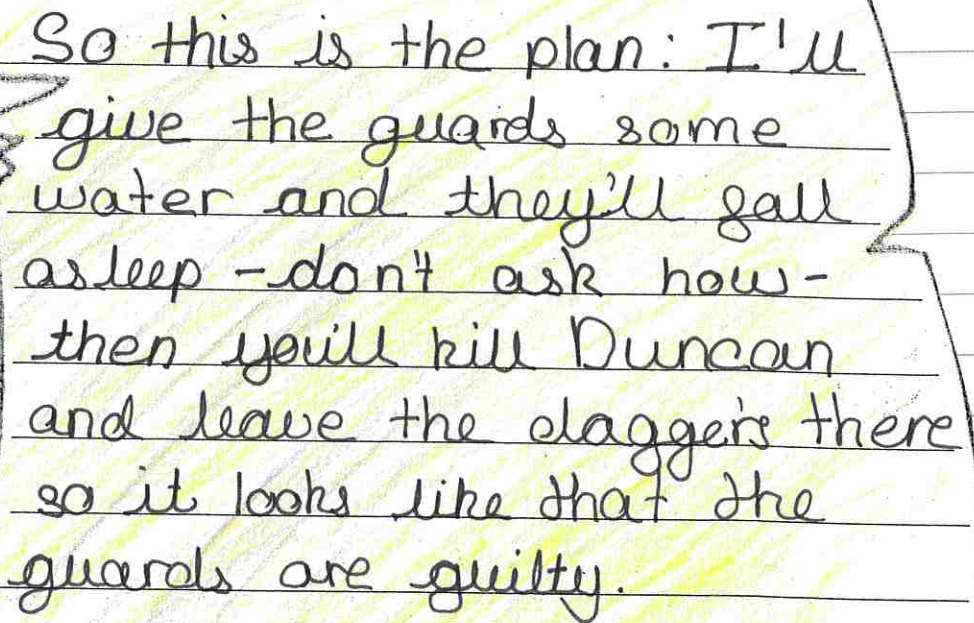 So this is the plan: I'll
give the guards some
water and they'll fall
asleep - don't ask how -
then you'll kill Duncan
and leave the daggers there
so it looks like that the
guards are guilty.